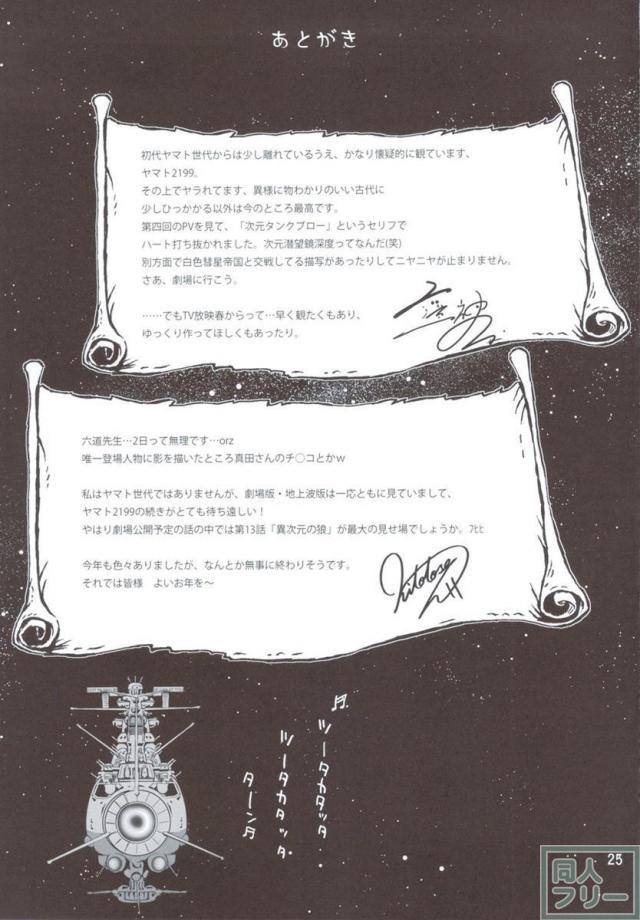 あとがき
初代ヤマト世代からは少し離れているうえ、かなり懐疑的に観ています、
ヤマト2199。
その上でヤラれてます、異様に物わかりのいい古代に
少しひっかかる以外は今のところ最高です。
第四回のPVを見て、「次元タンクブロー」というセリフで
ハート打ち抜かれました。次元潜望鏡深度ってなんだ(笑)
別方面で白色彗星帝国と交戦してる描写があったりしてニヤニヤが止まりません。
さあ、劇場に行こう。
……でもTV放映春からって…早く観たくもあり、
ゆっくり作ってほしくもあったり。
六道先生…2日って無理です…orz
唯一登場人物に影を描いたところ真田さんのチ○コとかw
私はヤマト世代ではありませんが、劇場版・地上波版は一応ともに見ていまして、
ヤマト2199の続きがとても待ち遠しい！
やはり劇場公開予定の話の中では第13話「異次元の狼」が最大の見せ場でしょうか。ﾌﾋﾋ
今年も色々ありましたが、なんとか無事に終わりそうです。
それでは皆様　よいお年を～
♬ ツータカタッタ・
ツータカタッタ・
ターン♬
25
同人
フリー